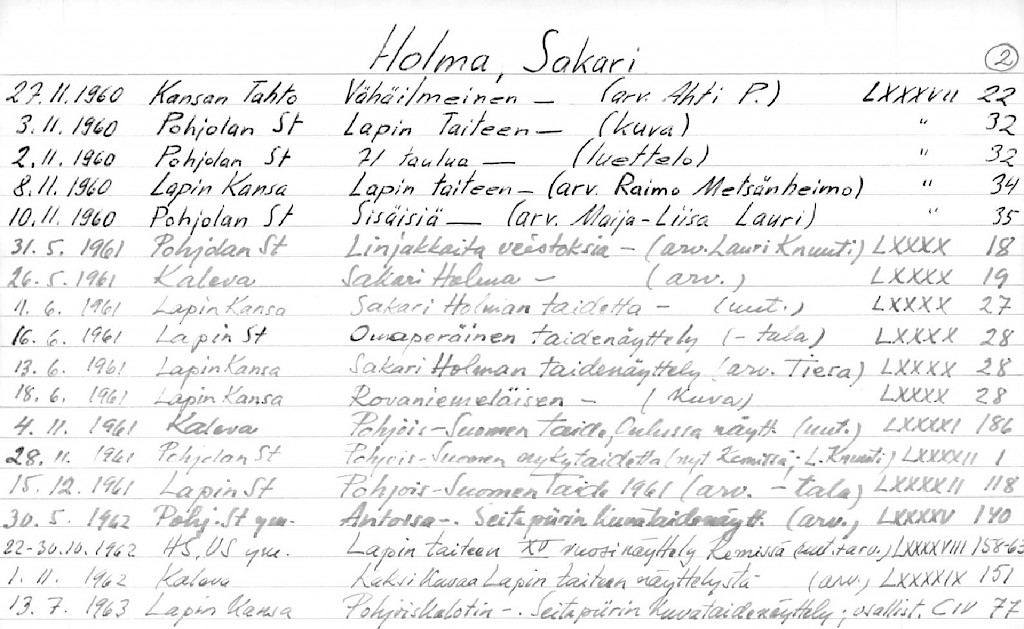 Holma, Sakari 2
27.11.1960 Kansan Tahto Vähäilmeinen — (arv. Ahti P.) LXXXVII 22
3.11.1960 Pohjolan St Lapin Taiteen — (kuva) " 32
2.11.1960 Pohjolan St 71 taulua — (luettelo) " 32
8.11.1960 Lapin Kansa Lapin taiteen — (arv. Raimo Metsänheimo) " 34
10.11.1960 Pohjolan St Sisäisiä — (arv. Maija-Liisa Lauri) " 35
31.5.1961 Pohjolan St Linjakkaita veistoksia — (arv. Lauri Knuuti) LXXXX 18
26.5.1961 Kaleva Sakari Holma — (arv.) LXXXX 19
11.6.1961 Lapin Kansa Sakari Holman taidetta — (uut.) LXXXX 27
16.6.1961 Lapin St Omaperäinen taidenäyttely (-tala) LXXXX 28
13.6.1961 Lapin Kansa Sakari Holman taidenäyttely (arv. Tiesa) LXXXX 28
18.6.1961 Lapin Kansa Rovaniemeläisen — (kuva) LXXXX 28
4.11.1961 Kaleva Pohjois-Suomen taide, Oulussa näytt. (uut.) LXXXXI 186
28.11.1961 Pohjolan St Pohjois-Suomen nykytaidetta (nyt Kemissä; L. Knuuti) LXXXXII 1
15.12.1961 Lapin St Pohjois-Suomen Taide 1961 (arv. -tala) LXXXXII 118
30.5.1962 Pohj. St ym. Antossa —. Seitapiirin kuvataidenäytt. (arv.) LXXXXV 140
22-30.10.1962 HS, US ym. Lapin taiteen XV vuosinäyttely Kemissä (uut. + arv.) LXXXXVIII 158-63
1.11.1962 Kaleva Kaksi kuvaa Lapin taiteen näyttelystä (arv.) LXXXXIX 151
13.7.1963 Lapin Kansa Pohjoiskalotin —. Seitapiirin kuvataidenäyttely; osallist. CIV 77